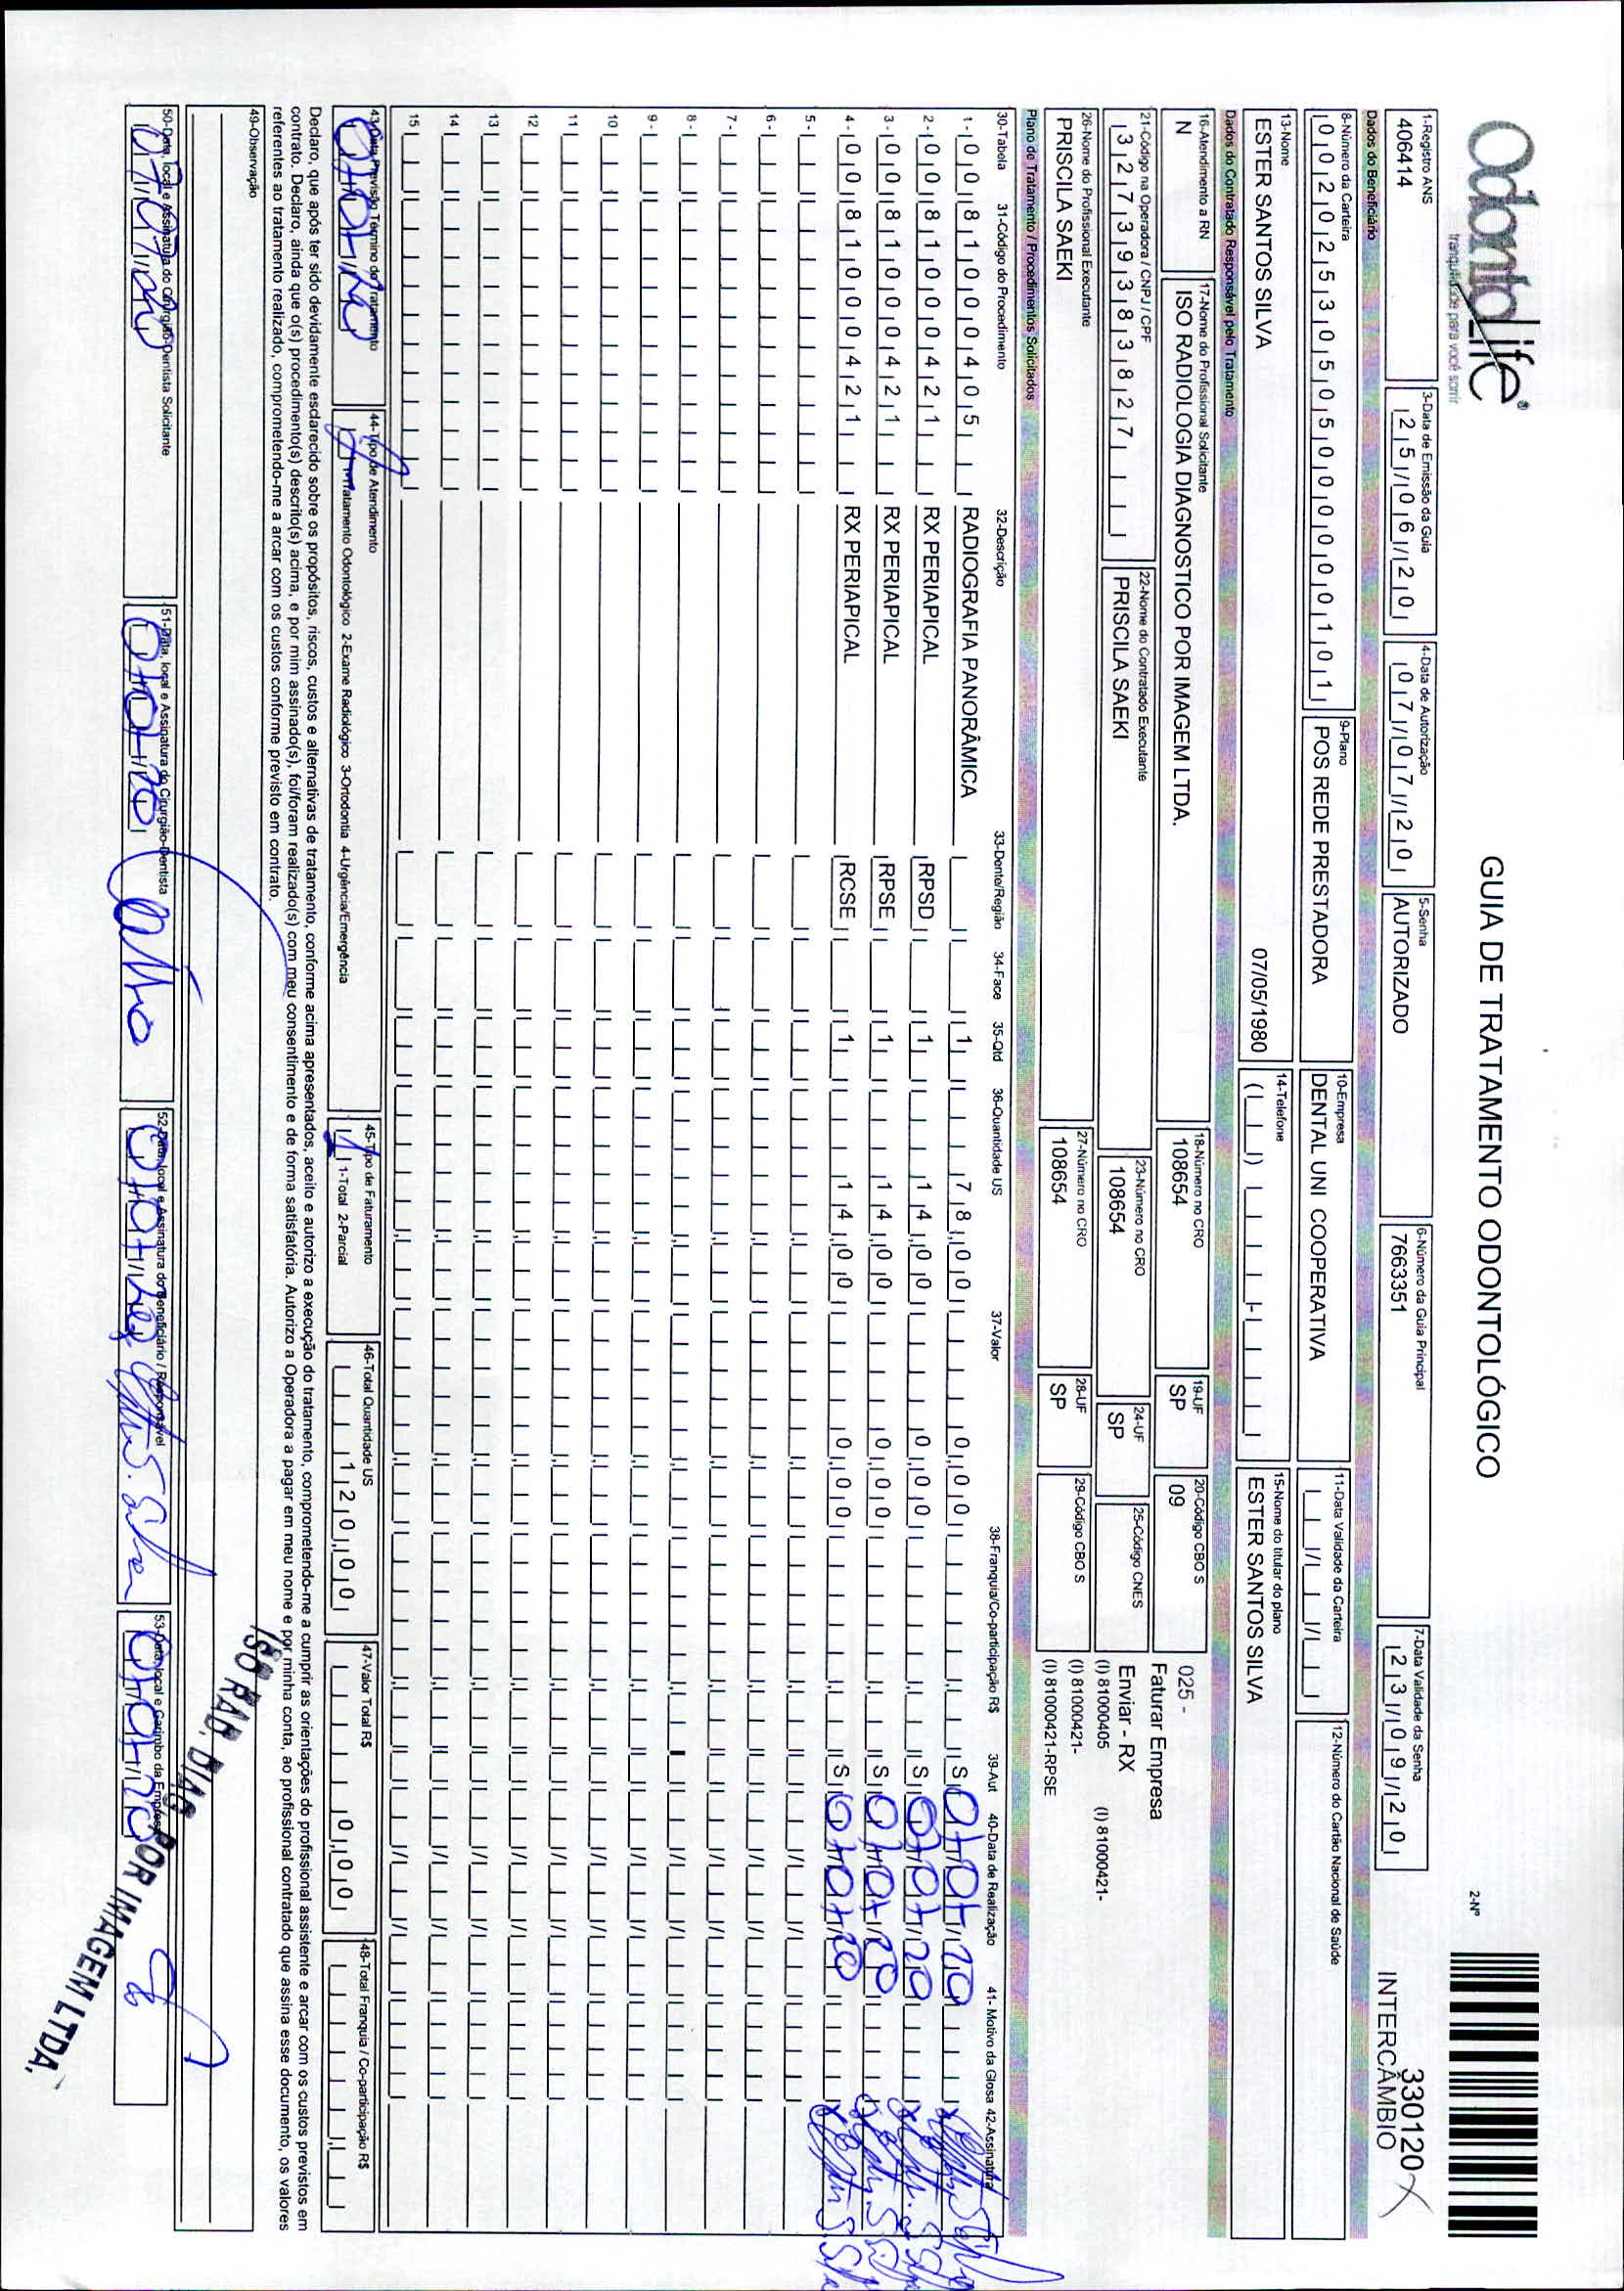 OdontoLife®
tranquilidade para você sorrir
GUIA DE TRATAMENTO ODONTOLÓGICO
2-Nº
330120
INTERCÂMBIO
1-Registro ANS
406414
3-Data de Emissão da Guia
25/06/20
4-Data de Autorização
07/07/20
5-Senha
AUTORIZADO
6-Número da Guia Principal
7663351
7-Data Validade da Senha
23/09/20
Dados do Beneficiário
8-Número da Carteira
00202530505000000101
9-Plano
POS REDE PRESTADORA
10-Empresa
DENTAL UNI COOPERATIVA
11-Data Validade da Carteira
12-Número do Cartão Nacional de Saúde
13-Nome
ESTER SANTOS SILVA 07/05/1980
14-Telefone
15-Nome do titular do plano
ESTER SANTOS SILVA
Dados do Contratado Responsável pelo Tratamento
16-Atendimento a RN
N
17-Nome do Profissional Solicitante
ISO RADIOLOGIA DIAGNOSTICO POR IMAGEM LTDA.
18-Número no CRO
108654
19-UF
SP
20-Código CBO S
09
025 -
Faturar Empresa
Enviar - RX
(I) 81000405 (I) 81000421-
(I) 81000421-
(I) 81000421-RPSE
21-Código na Operadora / CNPJ / CPF
32739383827
22-Nome do Contratado Executante
PRISCILA SAEKI
23-Número no CRO
108654
24-UF
SP
25-Código CNES
26-Nome do Profissional Executante
PRISCILA SAEKI
27-Número no CRO
108654
28-UF
SP
29-Código CBO S
Plano de Tratamento / Procedimentos Solicitados
30-Tabela 31-Código do Procedimento 32-Descrição 33-Dente/Região 34-Face 35-Qtd 36-Quantidade US 37-Valor 38-Franquia/Co-participação R$ 39-Aut 40-Data de Realização 41- Motivo da Glosa 42-Assinatura
1 - 00 81000405 RADIOGRAFIA PANORÂMICA 1 78,00 0,00 S 07/07/20
2 - 00 81000421 RX PERIAPICAL RPSD 1 14,00 0,00 S 07/07/20
3 - 00 81000421 RX PERIAPICAL RPSE 1 14,00 0,00 S 07/07/20
4 - 00 81000421 RX PERIAPICAL RCSE 1 14,00 0,00 S 07/07/20
5 -
6 -
7 -
8 -
9 -
10
11
12
13
14
15
43-Data Previsão Término do Tratamento
07/07/20
44-Tipo de Atendimento
1-Tratamento Odontológico 2-Exame Radiológico 3-Ortodontia 4-Urgência/Emergência
45-Tipo de Faturamento
1 1-Total 2-Parcial
46-Total Quantidade US
120,00
47-Valor Total R$
0,00
48-Total Franquia / Co-participação R$
Declaro, que após ter sido devidamente esclarecido sobre os propósitos, riscos, custos e alternativas de tratamento, conforme acima apresentados, aceito e autorizo a execução do tratamento, comprometendo-me a cumprir as orientações do profissional assistente e arcar com os custos previstos em
contrato. Declaro, ainda que o(s) procedimento(s) descrito(s) acima, e por mim assinado(s), foi/foram realizado(s) com meu consentimento e de forma satisfatória. Autorizo a Operadora a pagar em meu nome e por minha conta, ao profissional contratado que assina esse documento, os valores
referentes ao tratamento realizado, comprometendo-me a arcar com os custos conforme previsto em contrato.
49-Observação
50-Data, local e Assinatura do Cirurgião-Dentista Solicitante
07/07/20
51-Data, local e Assinatura do Cirurgião-Dentista
07/07/20
52-Data, local e Assinatura do Beneficiário / Responsável
07/07/20
53-Data, local e Carimbo da Empresa
07/07/20
ISO RAD. DIAG. POR IMAGEM LTDA.